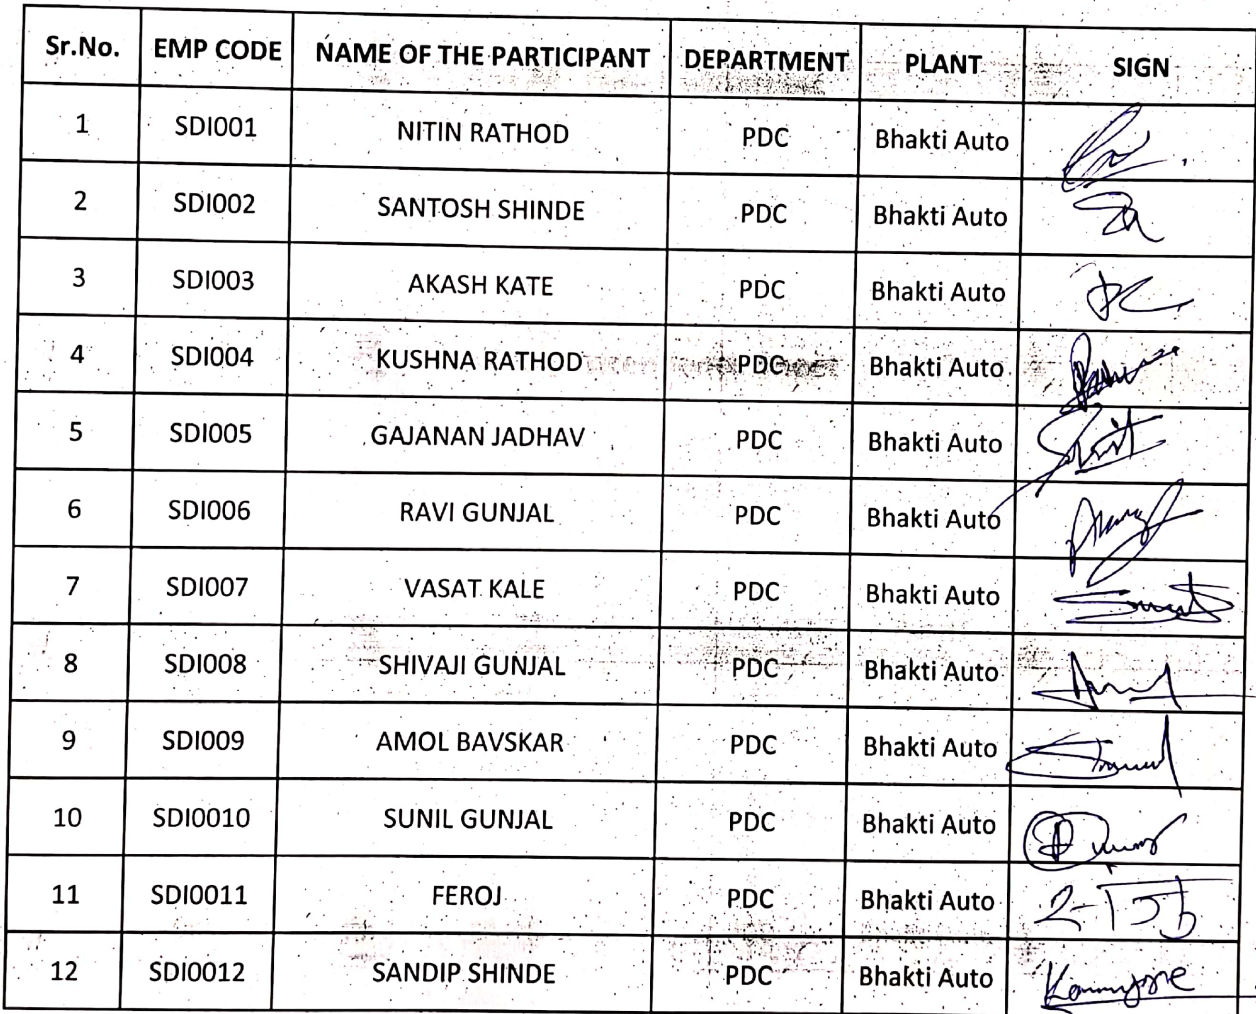 Sr.No. EMP CODE NAME OF THE PARTICIPANT DEPARTMENT PLANT SIGN
1 SDI001 NITIN RATHOD PDC Bhakti Auto
2 SDI002 SANTOSH SHINDE PDC Bhakti Auto
3 SDI003 AKASH KATE PDC Bhakti Auto
4 SDI004 KUSHNA RATHOD PDC Bhakti Auto
5 SDI005 GAJANAN JADHAV PDC Bhakti Auto
6 SDI006 RAVI GUNJAL PDC Bhakti Auto
7 SDI007 VASAT KALE PDC Bhakti Auto
8 SDI008 SHIVAJI GUNJAL PDC Bhakti Auto
9 SDI009 AMOL BAVSKAR PDC Bhakti Auto
10 SDI0010 SUNIL GUNJAL PDC Bhakti Auto
11 SDI0011 FEROJ PDC Bhakti Auto
12 SDI0012 SANDIP SHINDE PDC Bhakti Auto